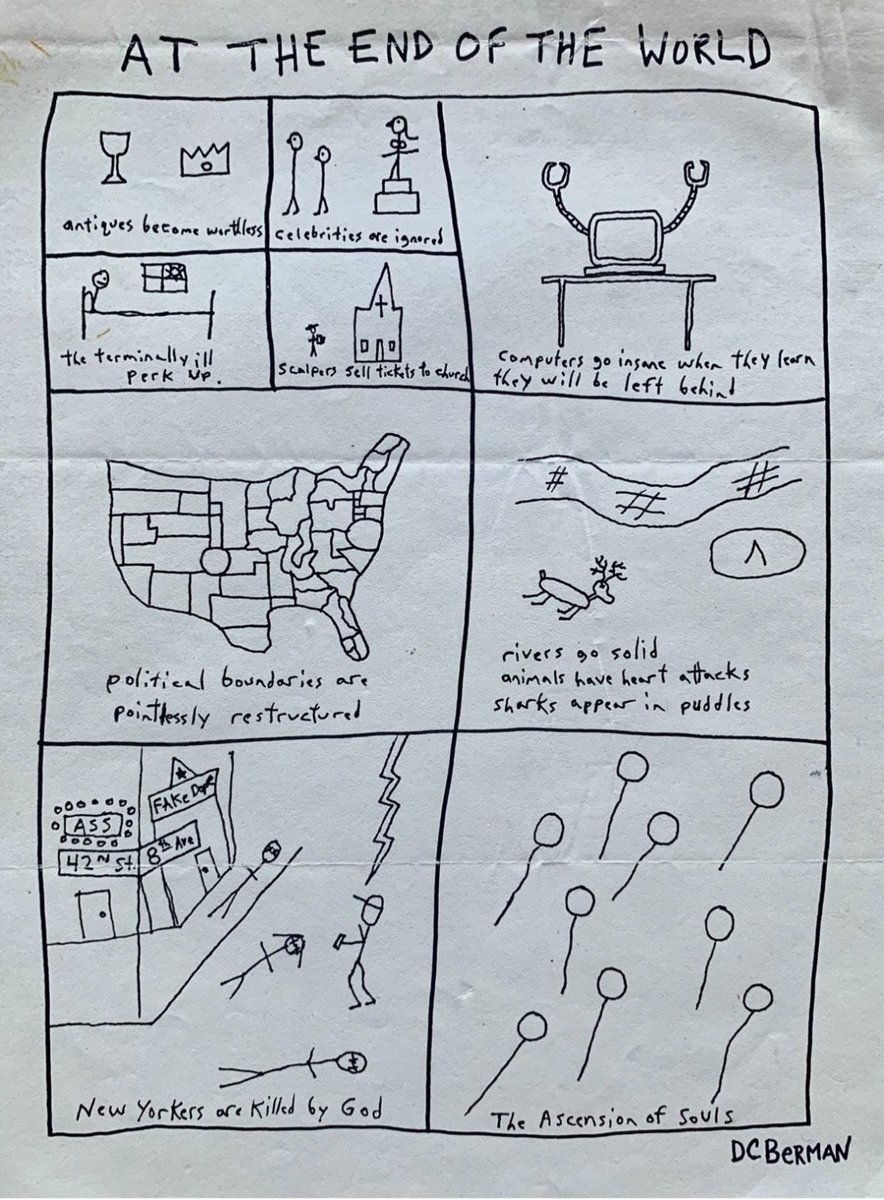 AT THE END OF THE WORLD
antiques become worthless
celebrities are ignored
the terminally ill
perk up.
scalpers sell tickets to church
computers go insane when they learn
they will be left behind
political boundaries are
pointlessly restructured
rivers go solid
animals have heart attacks
sharks appear in puddles
FAKe Dope
ASS
8th Ave
42nd St.
New Yorkers are killed by God
The Ascension of Souls
DCBERMAN